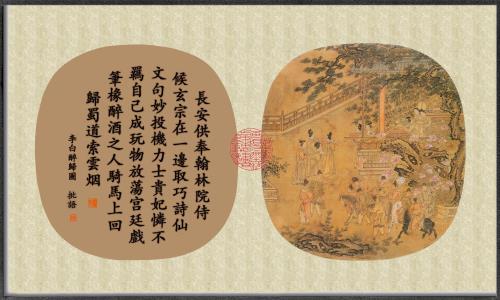 長安供奉翰林院侍
候玄宗在一邊取巧詩仙
文句妙投機力士貴妃憐不
羁自己成玩物放蕩宫廷戲
筆椽醉酒之人騎馬上回
歸蜀道索雲烟
李白醉歸圖 批語